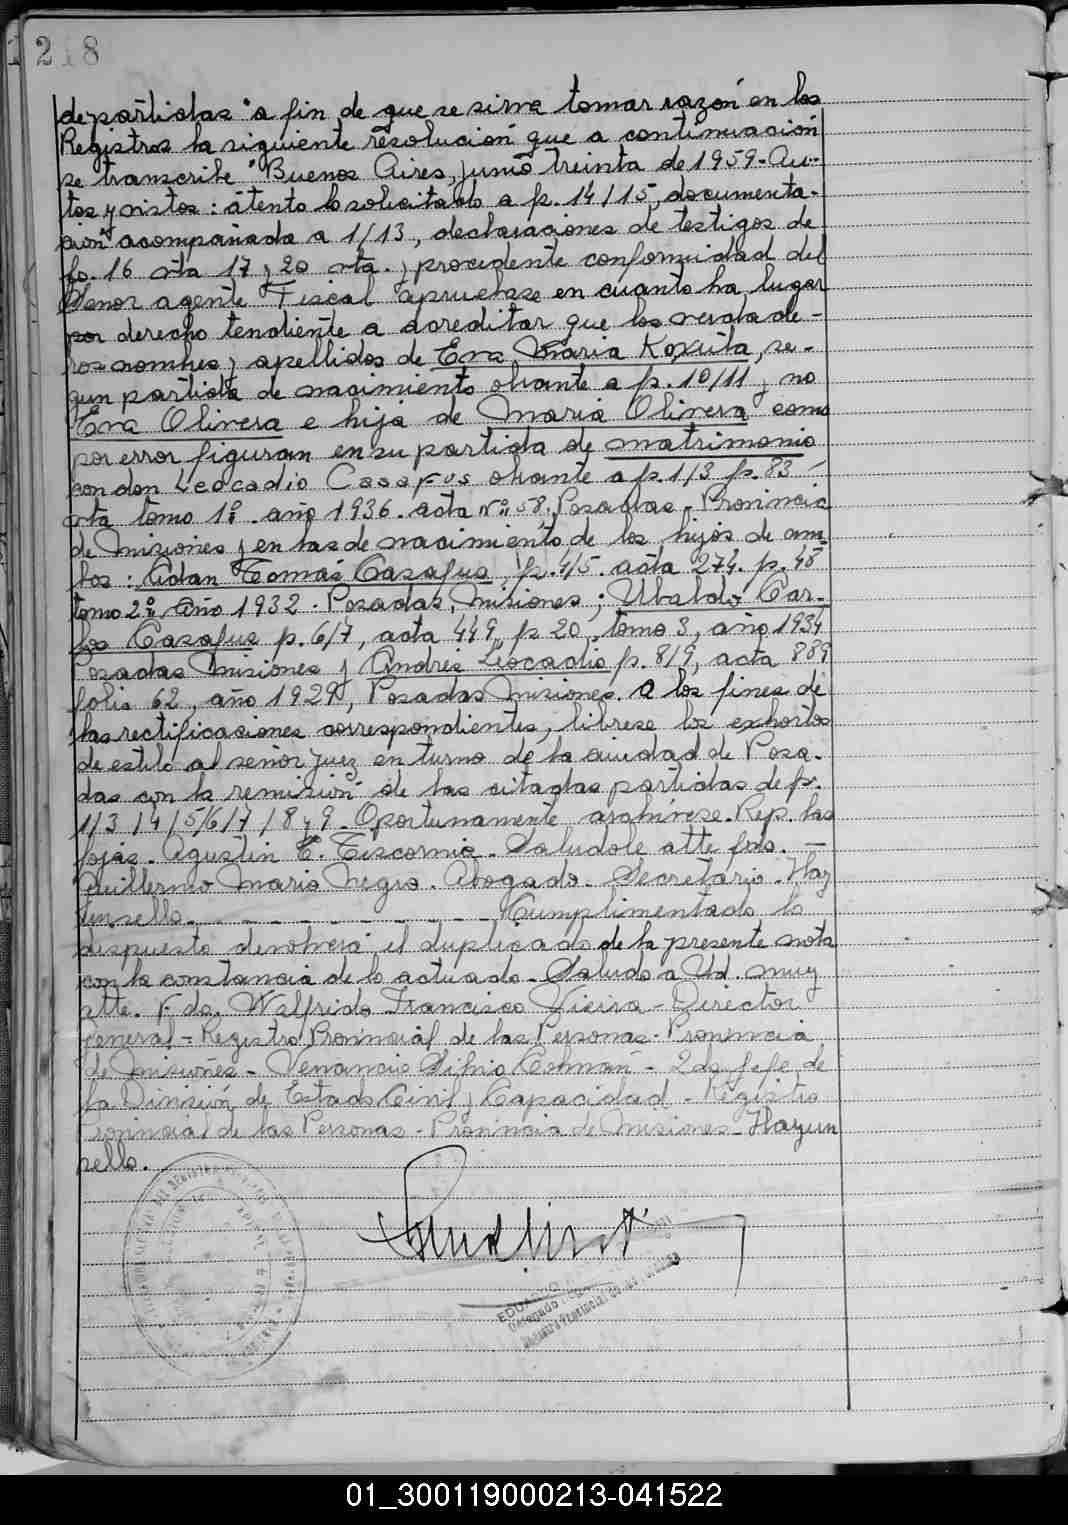 218
departidas "a fin de que se sirva tomar razón en los
Registros la siguiente resolución que a continuación
se transcribe "Buenos Aires, junio treinta de 1959- Au-
tos y vistos: atento lo solicitado a fs. 14/15, documenta-
ción acompañada a 1/13, declaraciones de testigos de
fs. 16 vta 17 y 20 vta. y procedente conformidad del
Señor agente Fiscal apruebase en cuanto ha lugar
por derecho tendiente a acreditar que los verdade-
ros nombres y apellidos de Eva Maria Koxuta, se-
gun partida de nacimiento obrante a fs. 10/11 y no
Eva Olivera e hija de Maria Olivera como
por error figuran en su partida de matrimonio
con don Leocadio Casafus obrante a fs. 1/3 fs. 83
vta tomo 1º. año 1936. acta Nº 58. Posadas - Provincia
de Misiones y en las de nacimiento de los hijos de am-
bos: Adan Tomás Casafus, fs. 4/5. acta 274. fs. 48
tomo 2º Año 1932. Posadas, Misiones; Ubaldo Car-
los Casafus fs. 6/7, acta 449, fs 20, tomo 3, año 1934
Posadas Misiones y Andrés Leocadio fs. 8/9, acta 889
folio 62, año 1929, Posadas Misiones. A los fines de
las rectificaciones correspondientes, librese los exhortos
de estilo al señor Juez en turno de la ciudad de Posa-
das con la remisión de las citadas partidas de fs.
1/3/4/5/6/7/8 y 9. Oportunamente archívese. Rep. las
fojas. Agustin E. Tiscornia. Saludole atte fdo. —
Guillermo Mario Negro. Abogado. Secretario. Hay
un sello. — — — — — Cumplimentado lo
dispuesto devolverá el duplicado de la presente nota
con la constancia de lo actuado. Saludo a Ud. muy
atte. Fdo. Walfrido Francisco Vieira - Director
General - Registro Provincial de las Personas - Provincia
de Misiones - Venancio Silvio - 2do Jefe de
la División de Estado Civil y Capacidad - Registro
Provincial de las Personas - Provincia de Misiones - Hay un
sello.
EDUARDO
Delegado
Registro Provincial de las Personas
01_300119000213-041522